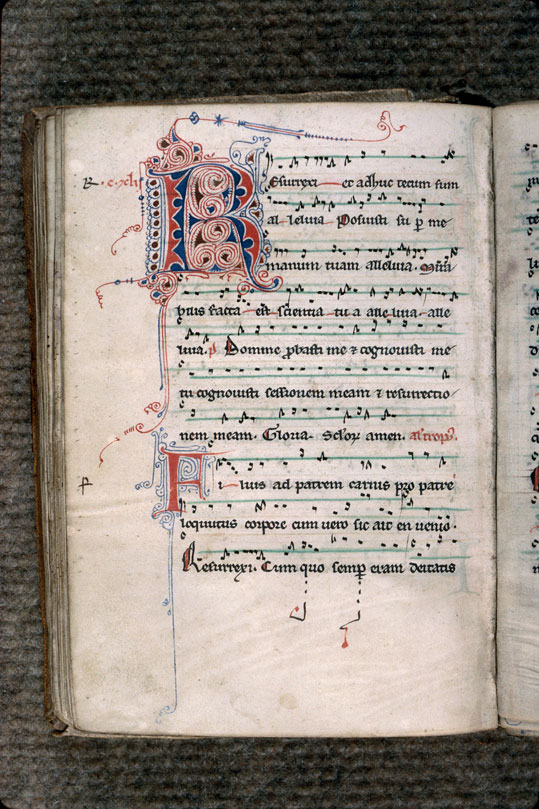 Resurrexi et adhuc tecum sum
al leluia Posuisti su p me
manum tuam alleluia. Mira
bilis facta est scientia tu a alle luia. alle
luia. p Domine pbasti me ⁊ cognouisti me
tu cognouisti sessionem meam ⁊ resurrectio
nem meam. Gloria. Sclor amen.
Fi lius ad patrem carnis pro patre
loquutus corpore cum uero sic ait en uenio.
Resurrexi. Cum quo semp eram deitatis